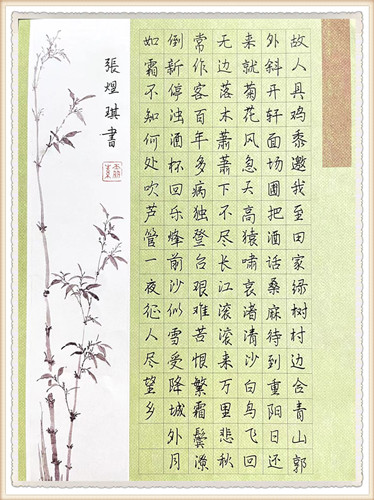 故人具鸡黍邀我至田家绿树村边合青山郭
外斜开轩面场圃把酒话桑麻待到重阳日还
来就菊花风急天高猿啸哀渚清沙白鸟飞回
无边落木萧萧下不尽长江滚滚来万里悲秋
常作客百年多病独登台艰难苦恨繁霜鬓潦
倒新停浊酒杯回乐烽前沙似雪受降城外月
如霜不知何处吹芦管一夜征人尽望乡
張煜琪書